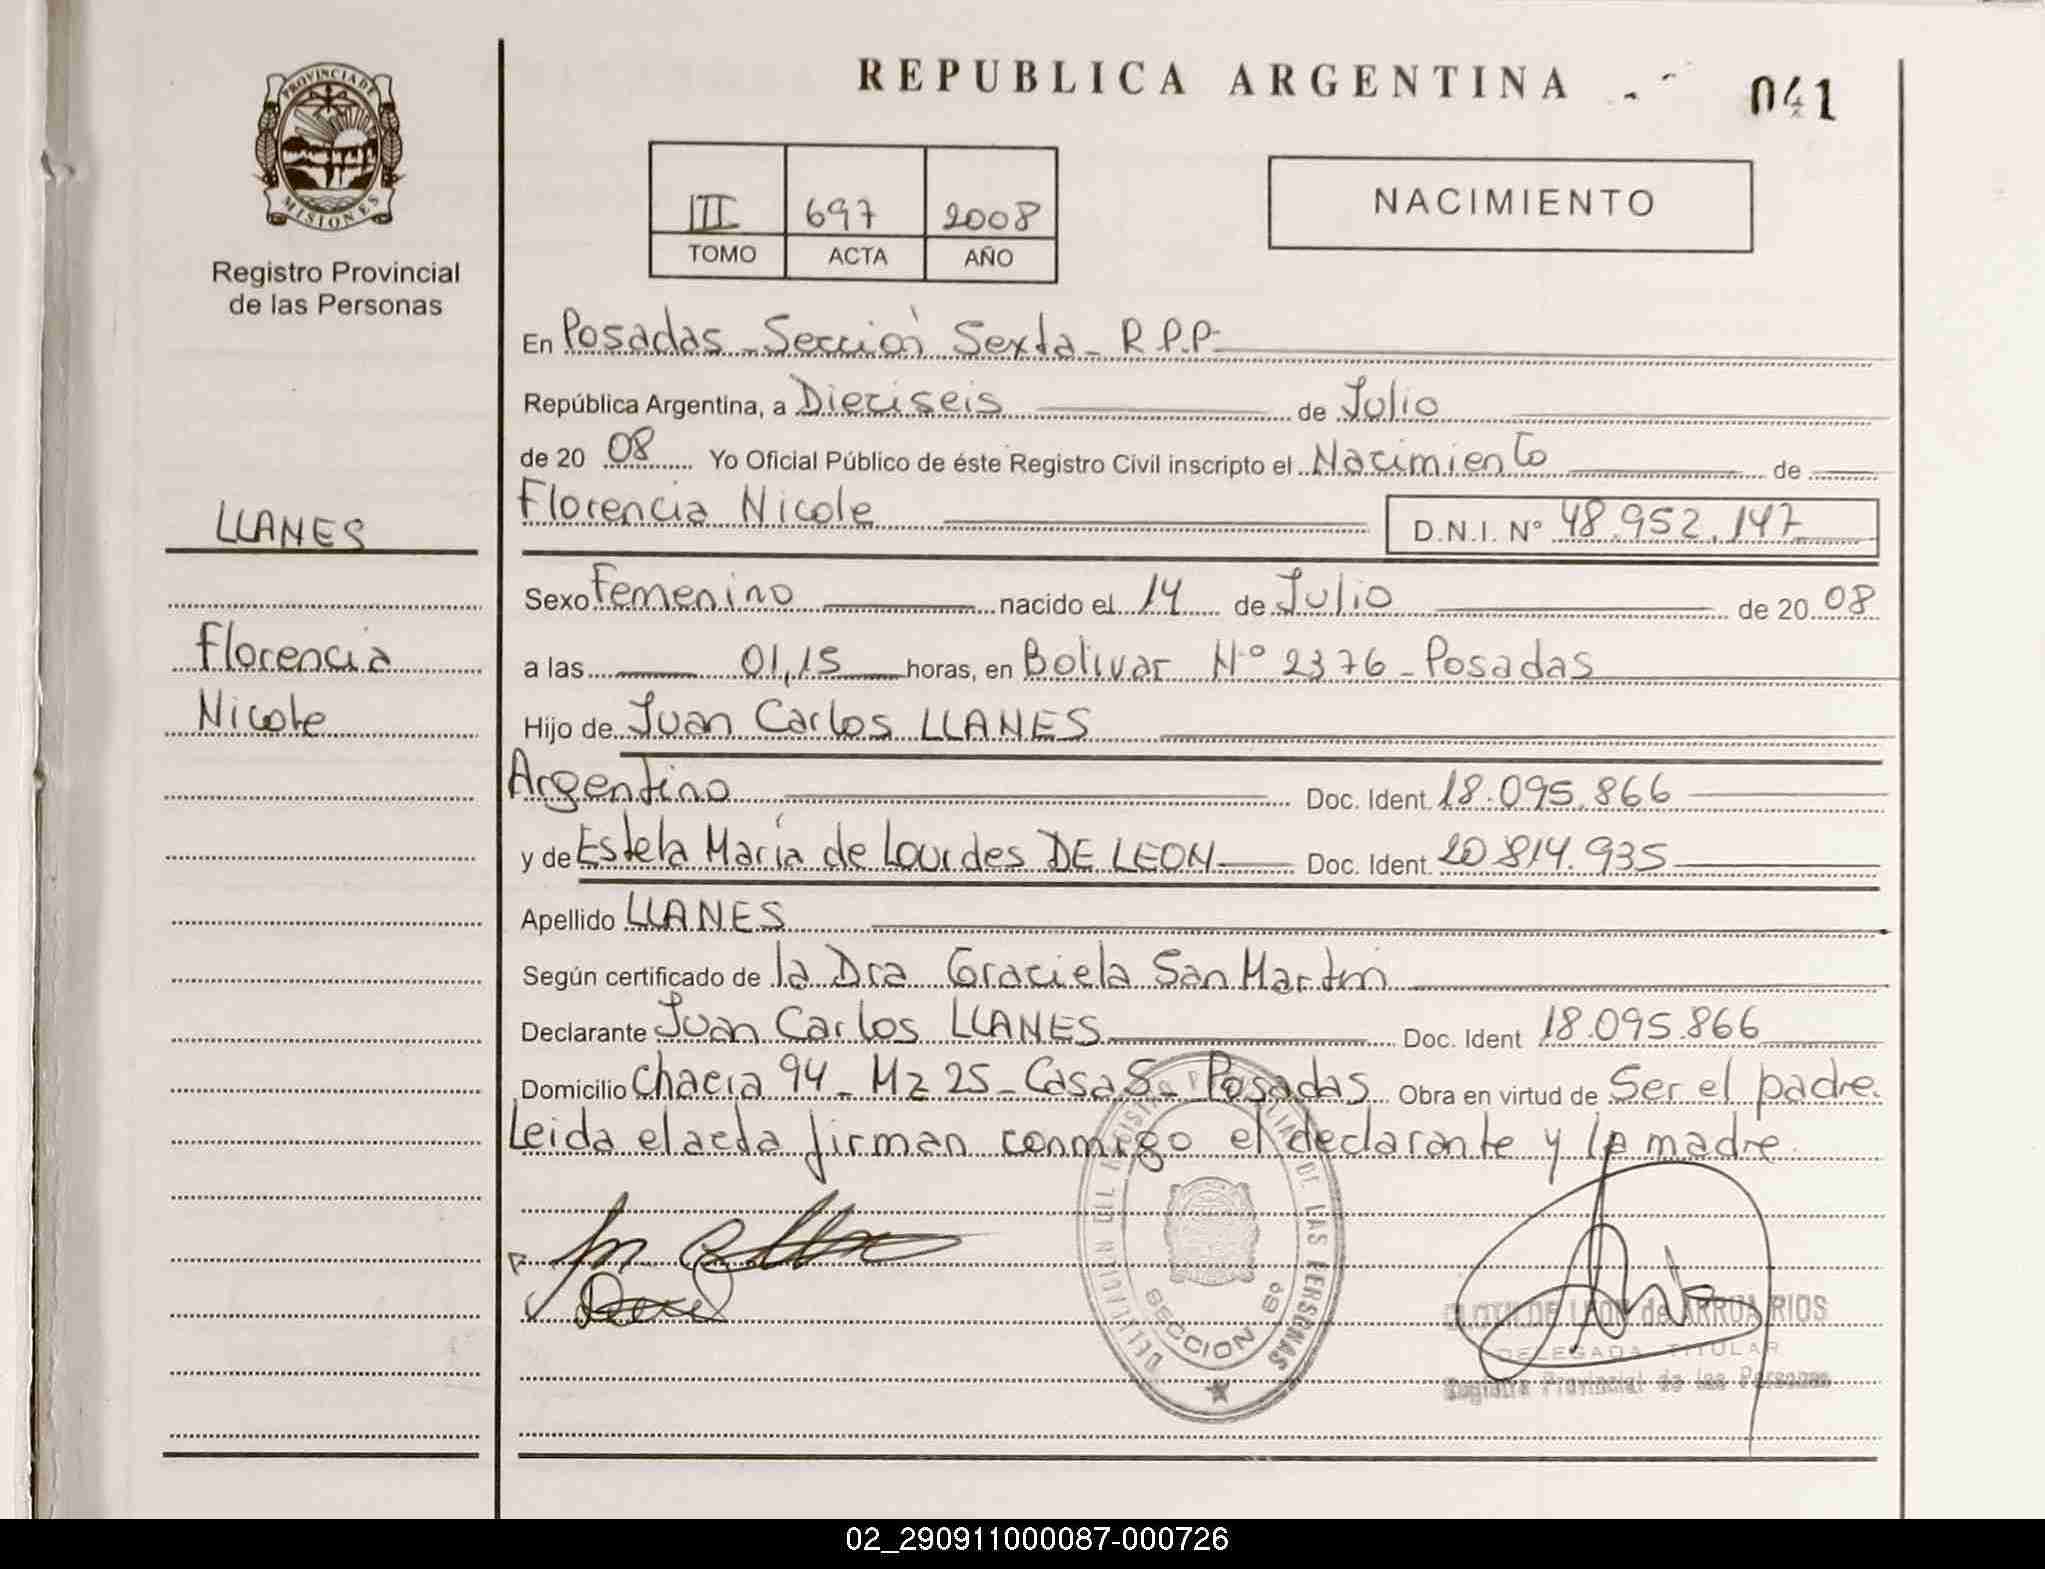 REPUBLICA ARGENTINA
041
PROVINCIA DE
MISIONES
Registro Provincial
de las Personas
III 697 2008
TOMO ACTA AÑO
NACIMIENTO
En Posadas - Sección Sexta - R.P.P.
República Argentina, a Dieciseis de Julio
de 20 08 Yo Oficial Público de éste Registro Civil inscripto el Nacimiento de
Florencia Nicole D.N.I. Nº 48.952.147
LLANES
Florencia
Nicole
Sexo Femenino nacido el 14 de Julio de 20 08
a las 01,15 horas, en Bolivar Nº 2376 - Posadas
Hijo de Juan Carlos LLANES
Argentino Doc. Ident. 18.095.866
y de Estela María de Lourdes DE LEON Doc. Ident. 20.814.935
Apellido LLANES
Según certificado de la Dra Graciela San Martin
Declarante Juan Carlos LLANES Doc. Ident 18.095.866
Domicilio Chacra 94 - Mz 25 - Casa 8 - Posadas Obra en virtud de Ser el padre.
Leida el acta firman conmigo el declarante y la madre.
DELEGACION DEL REGISTRO PROVINCIAL DE LAS PERSONAS
SECCION 6º
CLOTILDE LEON de ARRUA RIOS
DELEGADA TITULAR
Registro Provincial de las Personas
02_290911000087-000726